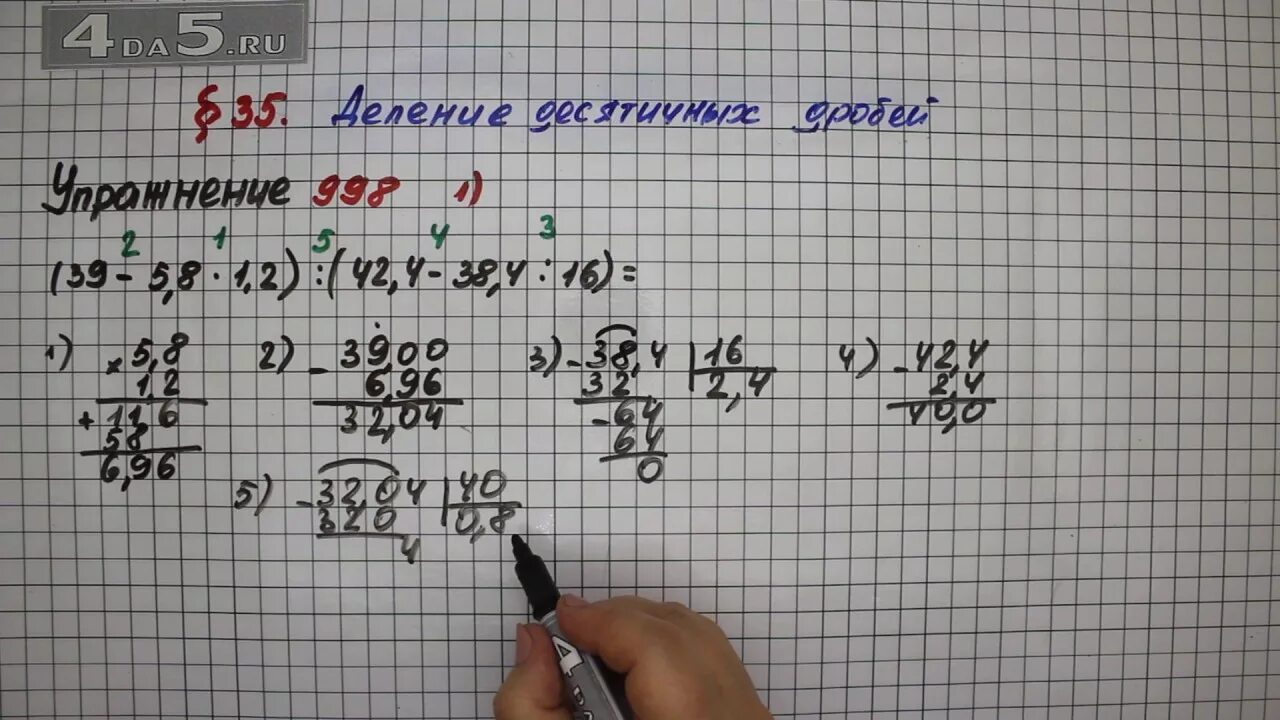 4DA5.RU
§ 35. Деление десятичных дробей
Упражнение 998 1)
2 1 5 4 3
(39 - 5,8 · 1,2) : (42,4 - 38,4 : 16) =
1) × 5,8
1,2
+ 116
58
6,96
2) - 39,00
6,96
32,04
3) - 38,4 | 16
32 | 2,4
- 64
64
0
4) - 42,4
2,4
40,0
5) - 32,04 | 40
320 | 0,8
4
4